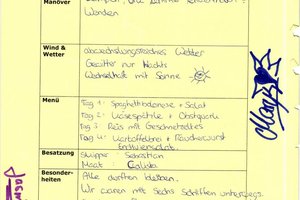 Manöver
Wenden
Wind &
Wetter
abwechslungsreiches Wetter
Gewitter nur Nachts
Wechselhaft mit Sonne
Menü
Tag 1: Spaghetti + Salat
Tag 2: Käsespätzle + Obstquark
Tag 3: Reis mit Geschnetzeltes
Tag 4: Kartoffelbrei + Räucherwurst
Endiviensalat
Besatzung
Skipper: Sebastian
Maat:
Besonder-
heiten
Alle durften bleiben.
Wir waren mit sechs Schiffen unterwegs.